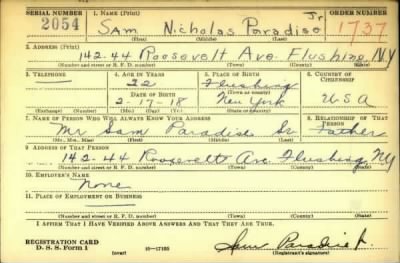 SERIAL NUMBER 1. NAME (Print) Jr ORDER NUMBER
2054 Sam Nicholas Paradise 1737
(First) (Middle) (Last)
2. ADDRESS (Print)
142-44 Roosevelt Ave. Flushing N.Y
(Number and street or R. F. D. number) (Town) (County) (State)
3. TELEPHONE 4. AGE IN YEARS 5. PLACE OF BIRTH 6. COUNTRY OF CITIZENSHIP
22 Flushing
DATE OF BIRTH (Town or county)
2-17-18 New York U S A
(Exchange) (Number) (Mo.) (Day) (Yr.) (State or country)
7. NAME OF PERSON WHO WILL ALWAYS KNOW YOUR ADDRESS 8. RELATIONSHIP OF THAT PERSON
Mr Sam Paradise Sr Father
(Mr., Mrs., Miss) (First) (Middle) (Last)
9. ADDRESS OF THAT PERSON
142-44 Roosevelt Ave. Flushing NY
(Number and street or R. F. D. number) (Town) (County) (State)
10. EMPLOYER'S NAME
None
11. PLACE OF EMPLOYMENT OR BUSINESS
(Number and street or R. F. D. number) (Town) (County) (State)
I AFFIRM THAT I HAVE VERIFIED ABOVE ANSWERS AND THAT THEY ARE TRUE.
REGISTRATION CARD
D. S. S. Form 1 (over) 16-17105 Sam Paradise Jr.
(Registrant's signature)